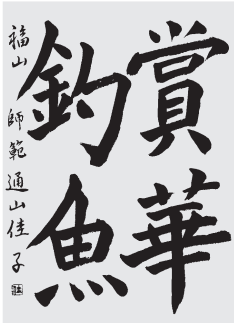 賞華
釣魚
福山 師範 通山佳子